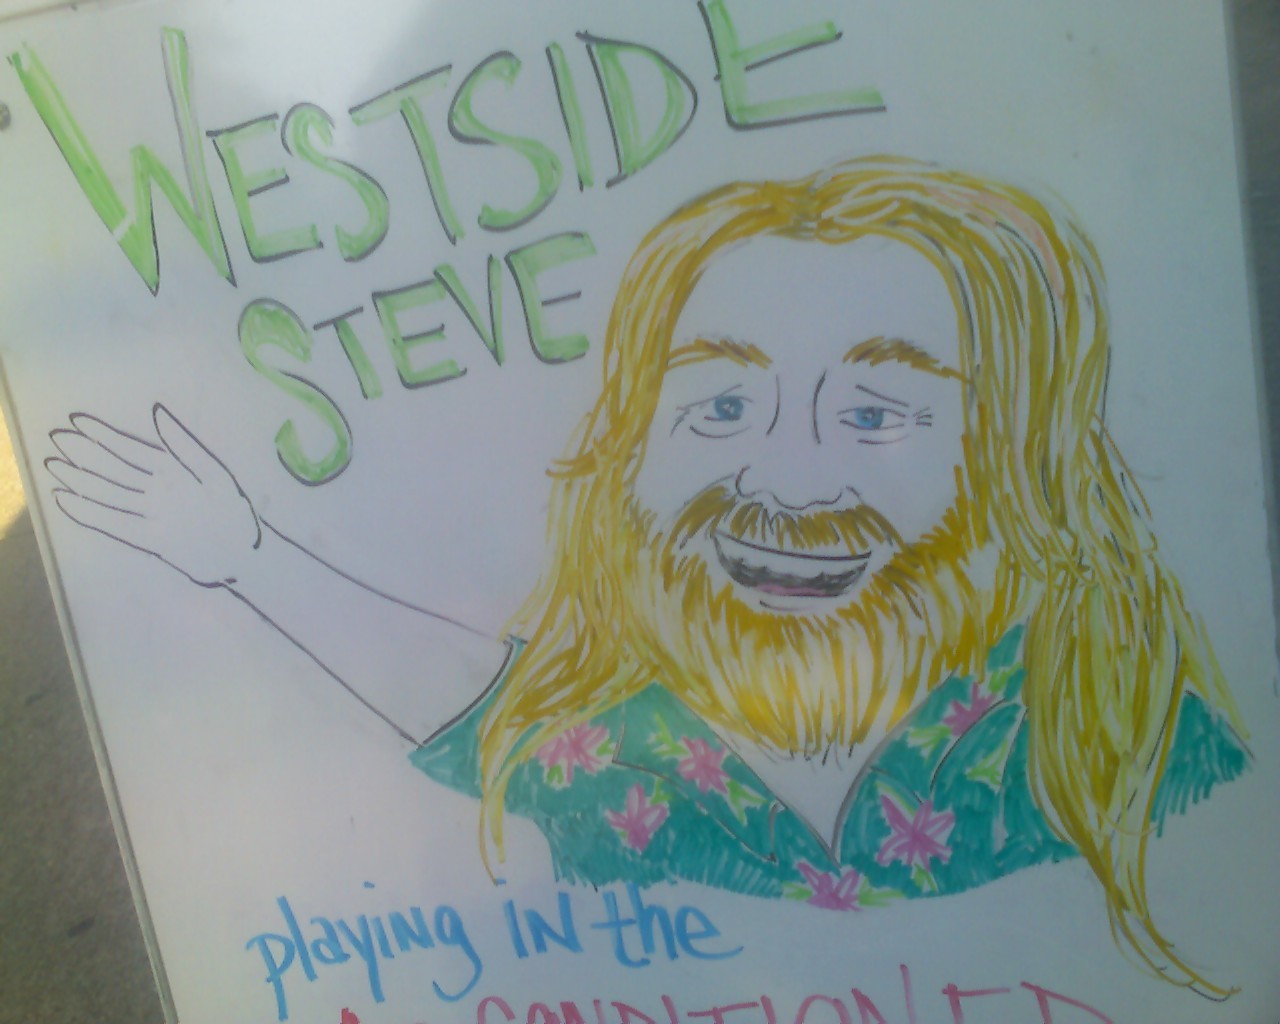 WESTSIDE
STEVE
playing in the
CONDITIONED